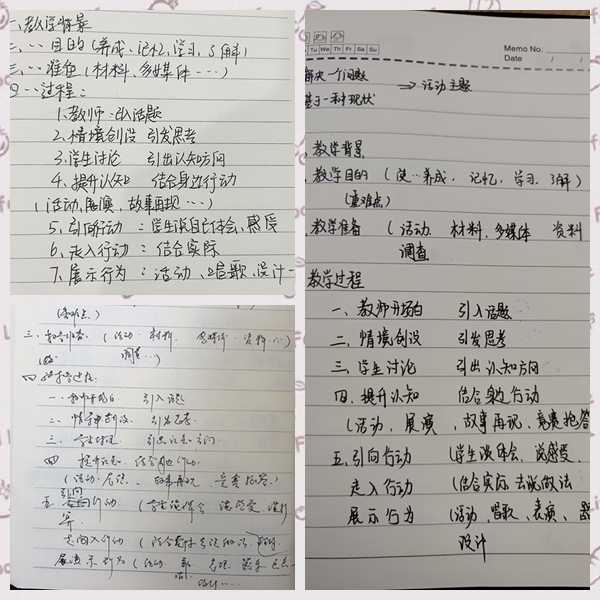 一、教学背景
二、‥目的(养成、记忆、学习、了解)
三、‥准备(材料、多媒体……)
四‥过程:
1.教师 引入话题
2.情境创设 引发思考
3.学生讨论 引出认知方向
4.提升认知 结合身边行动
(活动,展演,故事再现…)
5.引向行动:学生谈自己体会,感受
6.走入行动:结合实际
7.展示行为:活动、唱歌、设计
三、教学准备(活动 材料 多媒体 资料…)
调查…)
四 教学过程:
一、教师开场白 引入话题
二、情境创设 引发思考
三、学生讨论 引出认知方向
四 提升认知 结合身边行动
(活动 展演 故事再现 竞赛抢答)
五 引向行动 (学生谈体会 谈感受
走入行动 (结合实际去谈做法
展示行为 (活动 歌 表演
设计…
Tu We Th Fr Sa Su
Memo No.
Date / /
解决一个问题
基于一种现状
⇒活动主题
教学背景
教学目的(使…养成、记忆、学习、了解)
(重难点)
教学准备(活动、材料、多媒体 资料
调查
教学过程
一、教师开场白 引入话题
二、情境创设 引发思考
三、学生讨论 引出认知方向
四、提升认知 结合身边行动
(活动、展演、故事再现、竞赛抢答
五、引向行动 (学生谈体会、说感受
走入行动 (结合实际去谈做法
展示行为 (活动、唱歌、表演、
设计